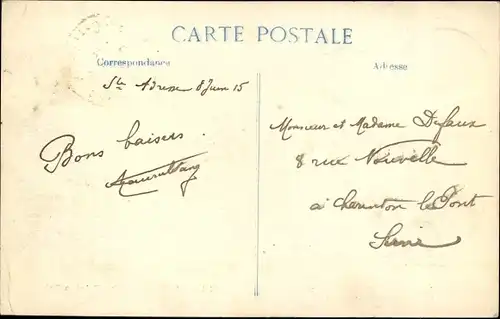 CARTE POSTALE
Correspondance
Adresse
Ste Adresse 8 Juin 15
Bons baisers.
Monsieur et Madame Defaux
8 rue Nouvelle
à Charenton le Pont
Seine